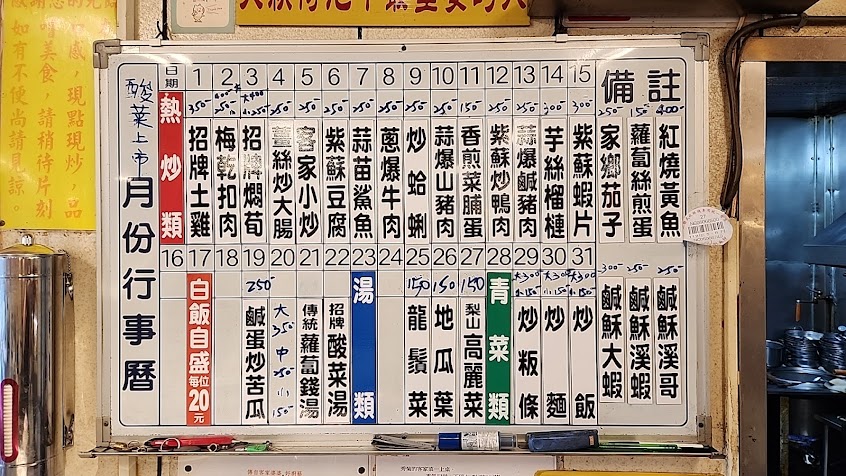 感，現點現炒，品
美食，請稍待片刻
如有不便尚請見諒。
酸菜上市
月份行事曆
日期 1 2 3 4 5 6 7 8 9 10 11 12 13 14 15 備註
熱炒類
350 招牌土雞
梅乾扣肉
大400 小250 招牌燜荀
250 薑絲炒大腸
250 客家小炒
250 紫蘇豆腐
250 蒜苗鯊魚
250 蔥爆牛肉
250 炒蛤蜊
250 蒜爆山豬肉
150 香煎菜脯蛋
250 紫蘇炒鴨肉
250 蒜爆鹹豬肉
300 芋絲榴槤
300 紫蘇蝦片
250 家鄉茄子
150 蘿蔔絲煎蛋
400 紅燒黃魚
16 17 18 19 20 21 22 23 24 25 26 27 28 29 30 31
白飯自盛每位20元
250 鹹蛋炒苦瓜
大350 中250 小150
傳統蘿蔔錢湯
招牌酸菜湯
湯類
150 龍鬚菜
150 地瓜葉
150 梨山高麗菜
青菜類
大300 小150 炒粄條
大300 小150 炒麵
大300 小150 炒飯
300 鹹穌大蝦
250 鹹穌溪蝦
250 鹹穌溪哥